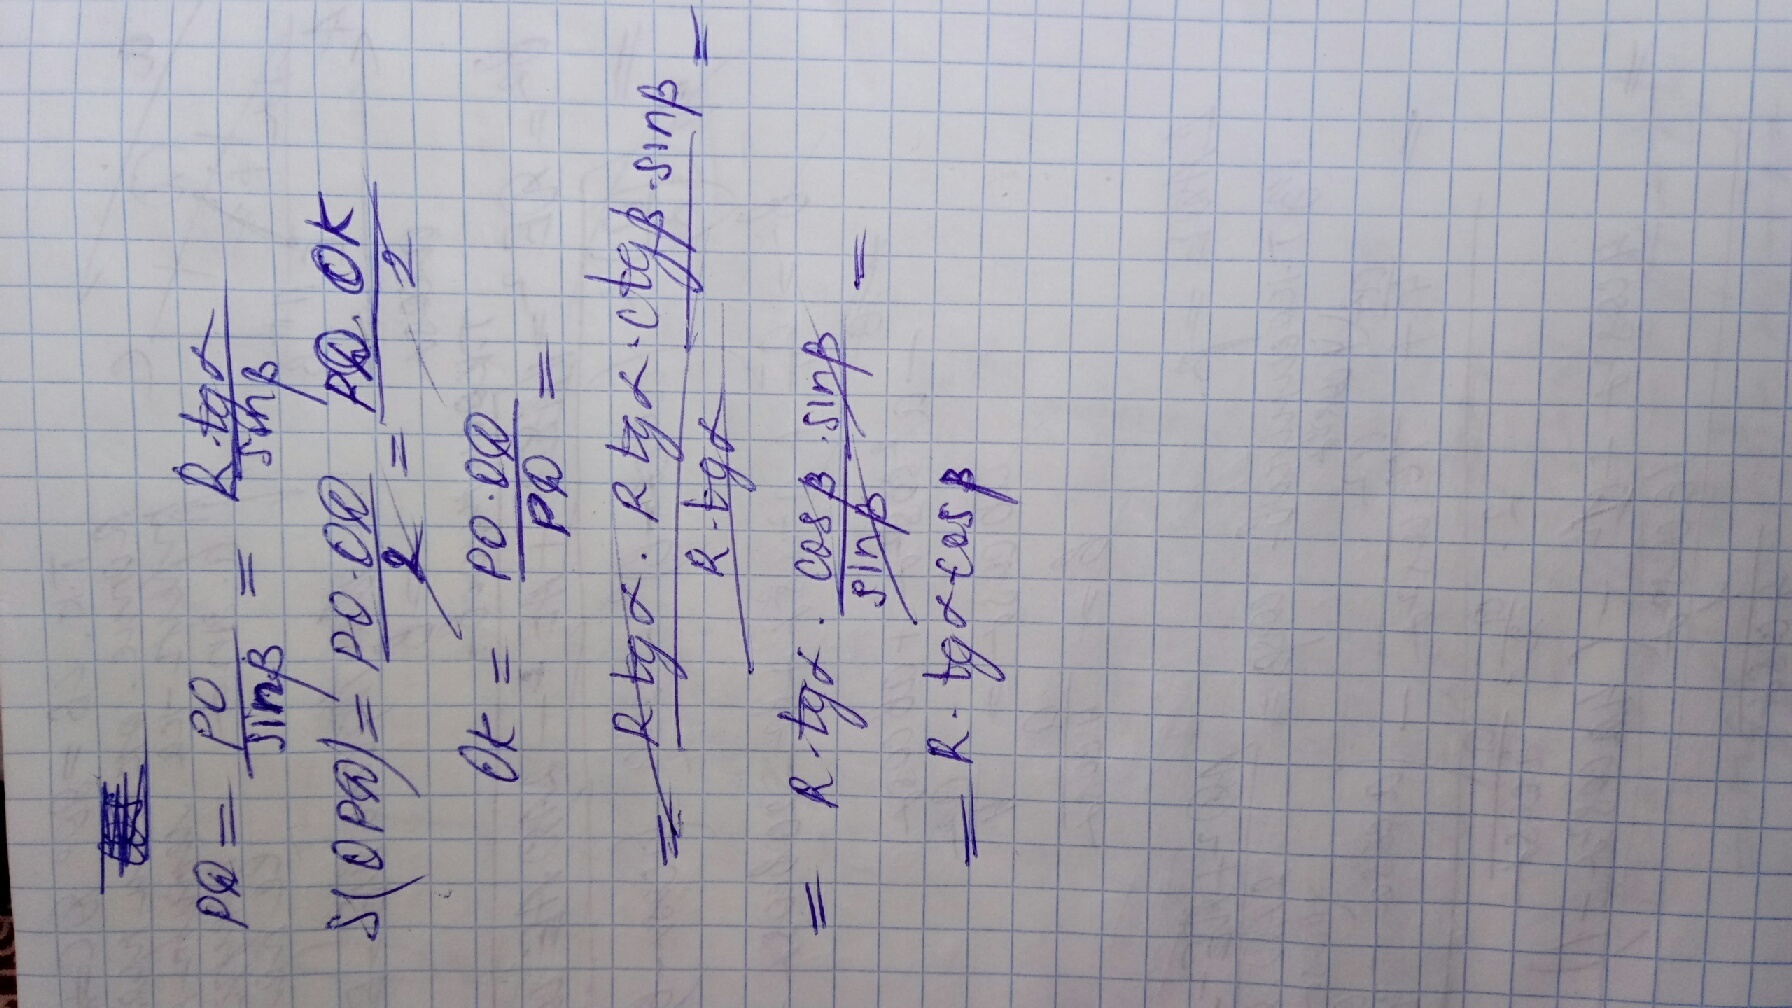 PQ = PO/sinβ = R·tgα/sinβ
S(OPQ) = PO·OQ/2 = PQ·OK/2
OK = PO·OQ/PQ =
= Rtgα·Rtgα·ctgβ·sinβ/R·tgα =
= R·tgα·cosβ·sinβ/sinβ =
= R·tgα·cosβ